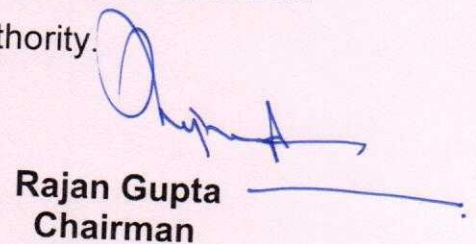 thority.
Rajan Gupta
Chairman